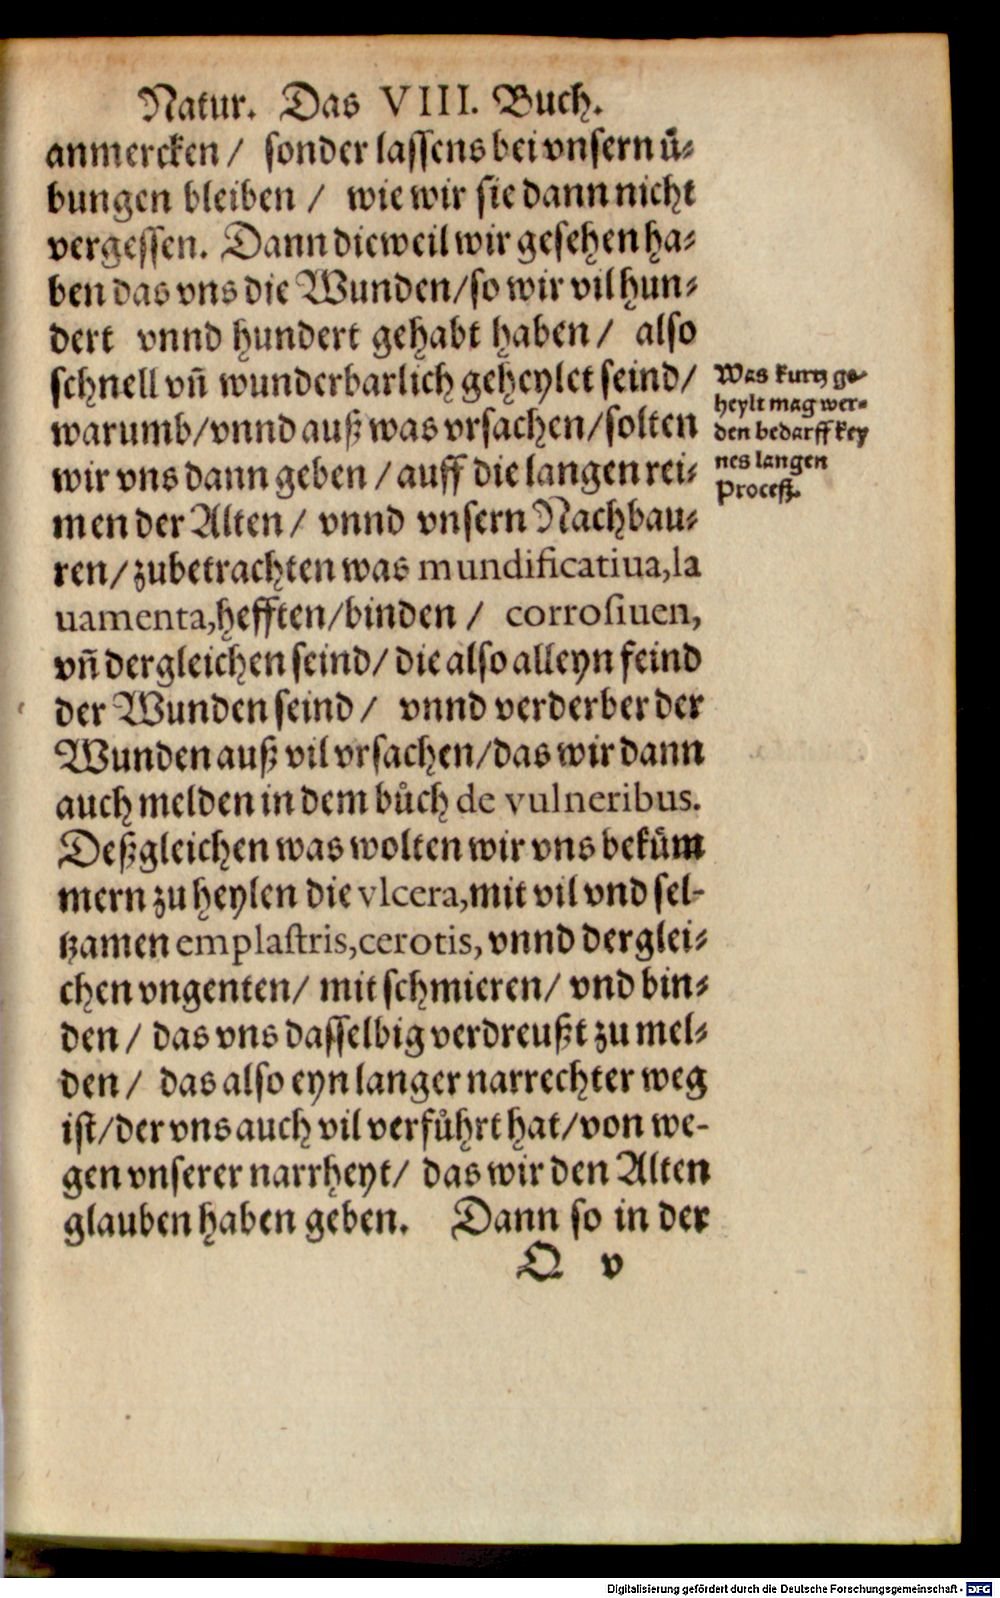 Natur. Das VIII. Buch.
anmercken / sonder lassens bei vnsern uͤ⸗
bungen bleiben / wie wir sie dann nicht
vergessen. Dann dieweil wir gesehen ha⸗
ben das vns die Wunden/so wir vil hun⸗
dert vnnd hundert gehabt haben / also
schnell vn̄ wunderbarlich geheylet seind/
warumb/vnnd auß was vrsachen/solten
wir vns dann geben / auff die langen rei⸗
men der Alten / vnnd vnsern Nachbau⸗
ren/zubetrachten was mundificatiua,la
uamenta,hefften/binden / corrosiuen,
vn̄ dergleichen seind/die also alleyn feind
der Wunden seind / vnnd verderber der
Wunden auß vil vrsachen/das wir dann
auch melden in dem bůch de vulneribus.
Deßgleichen was wolten wir vns bekuͤm
mern zu heylen die vlcera,mit vil vnd sel-
tzamen emplastris,cerotis, vnnd derglei⸗
chen vngenten/ mit schmieren/ vnd bin⸗
den / das vns dasselbig verdreußt zu mel⸗
den / das also eyn langer narrechter weg
ist/der vns auch vil verfuͤhrt hat/von we-
gen vnserer narrheyt/ das wir den Alten
glauben haben geben. Dann so in der
Q v
Was kurtz ge⸗
heylt mag wer⸗
den bedarff key
nes langen
Proceß.
Digitalisierung gefördert durch die Deutsche Forschungsgemeinschaft - DFG